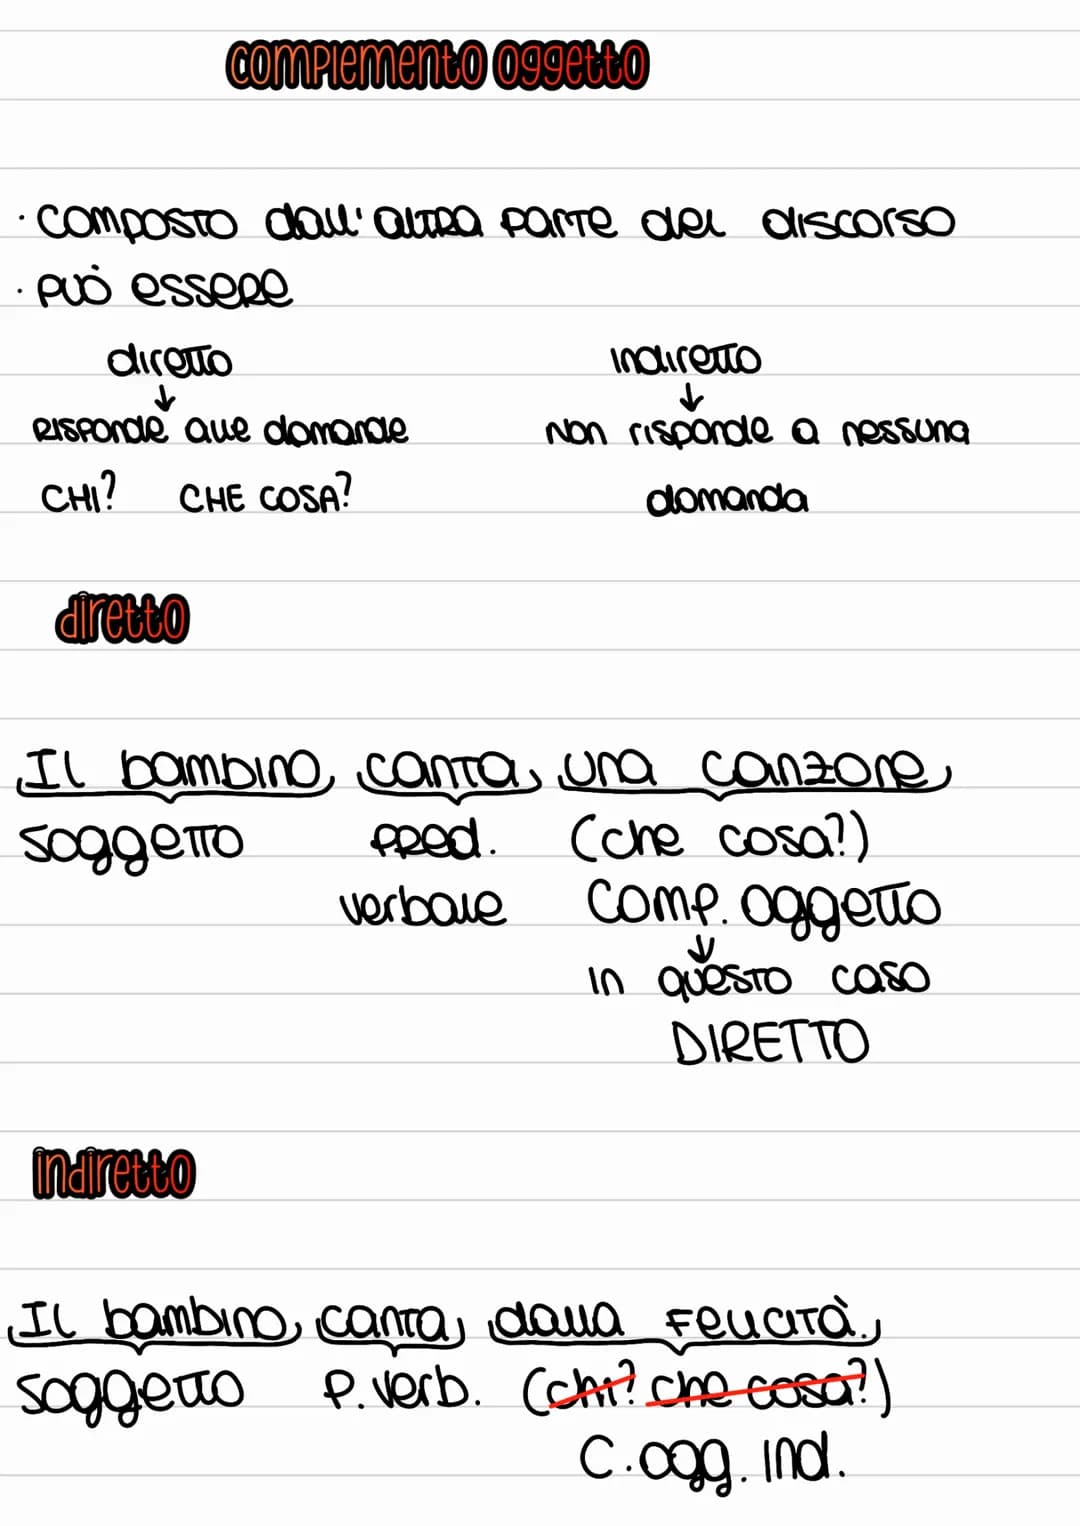 complemento oggetto
· COMPOSTO dall'altra parte del discorso
· può essere
diretto indiretto
↓ ↓
RISPONDE alle domande Non risponde a nessuna
CHI? CHE COSA? domanda
diretto
Il bambino canta una canzone
soggetto pred. (che cosa?)
verbale comp. oggetto
↓
in questo caso
DIRETTO
indiretto
Il bambino canta dalla felicità.
soggetto P. verb. (chi? che cosa?)
C. ogg. ind.